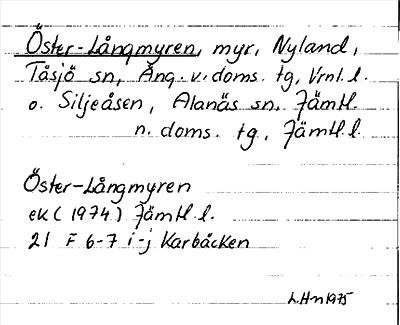 Öster-Långmyren, myr, Nyland,
Tåsjö sn, Ång. v. doms. tg, Vrnl. l.
o. Siljeåsen, Alanäs sn. Jämtl.
n. doms. tg, Jämtl. l.
Öster-Långmyren
ek (1974) Jämtl. l.
21 F 6-7 i-j Karbäcken
L.Hn 1975